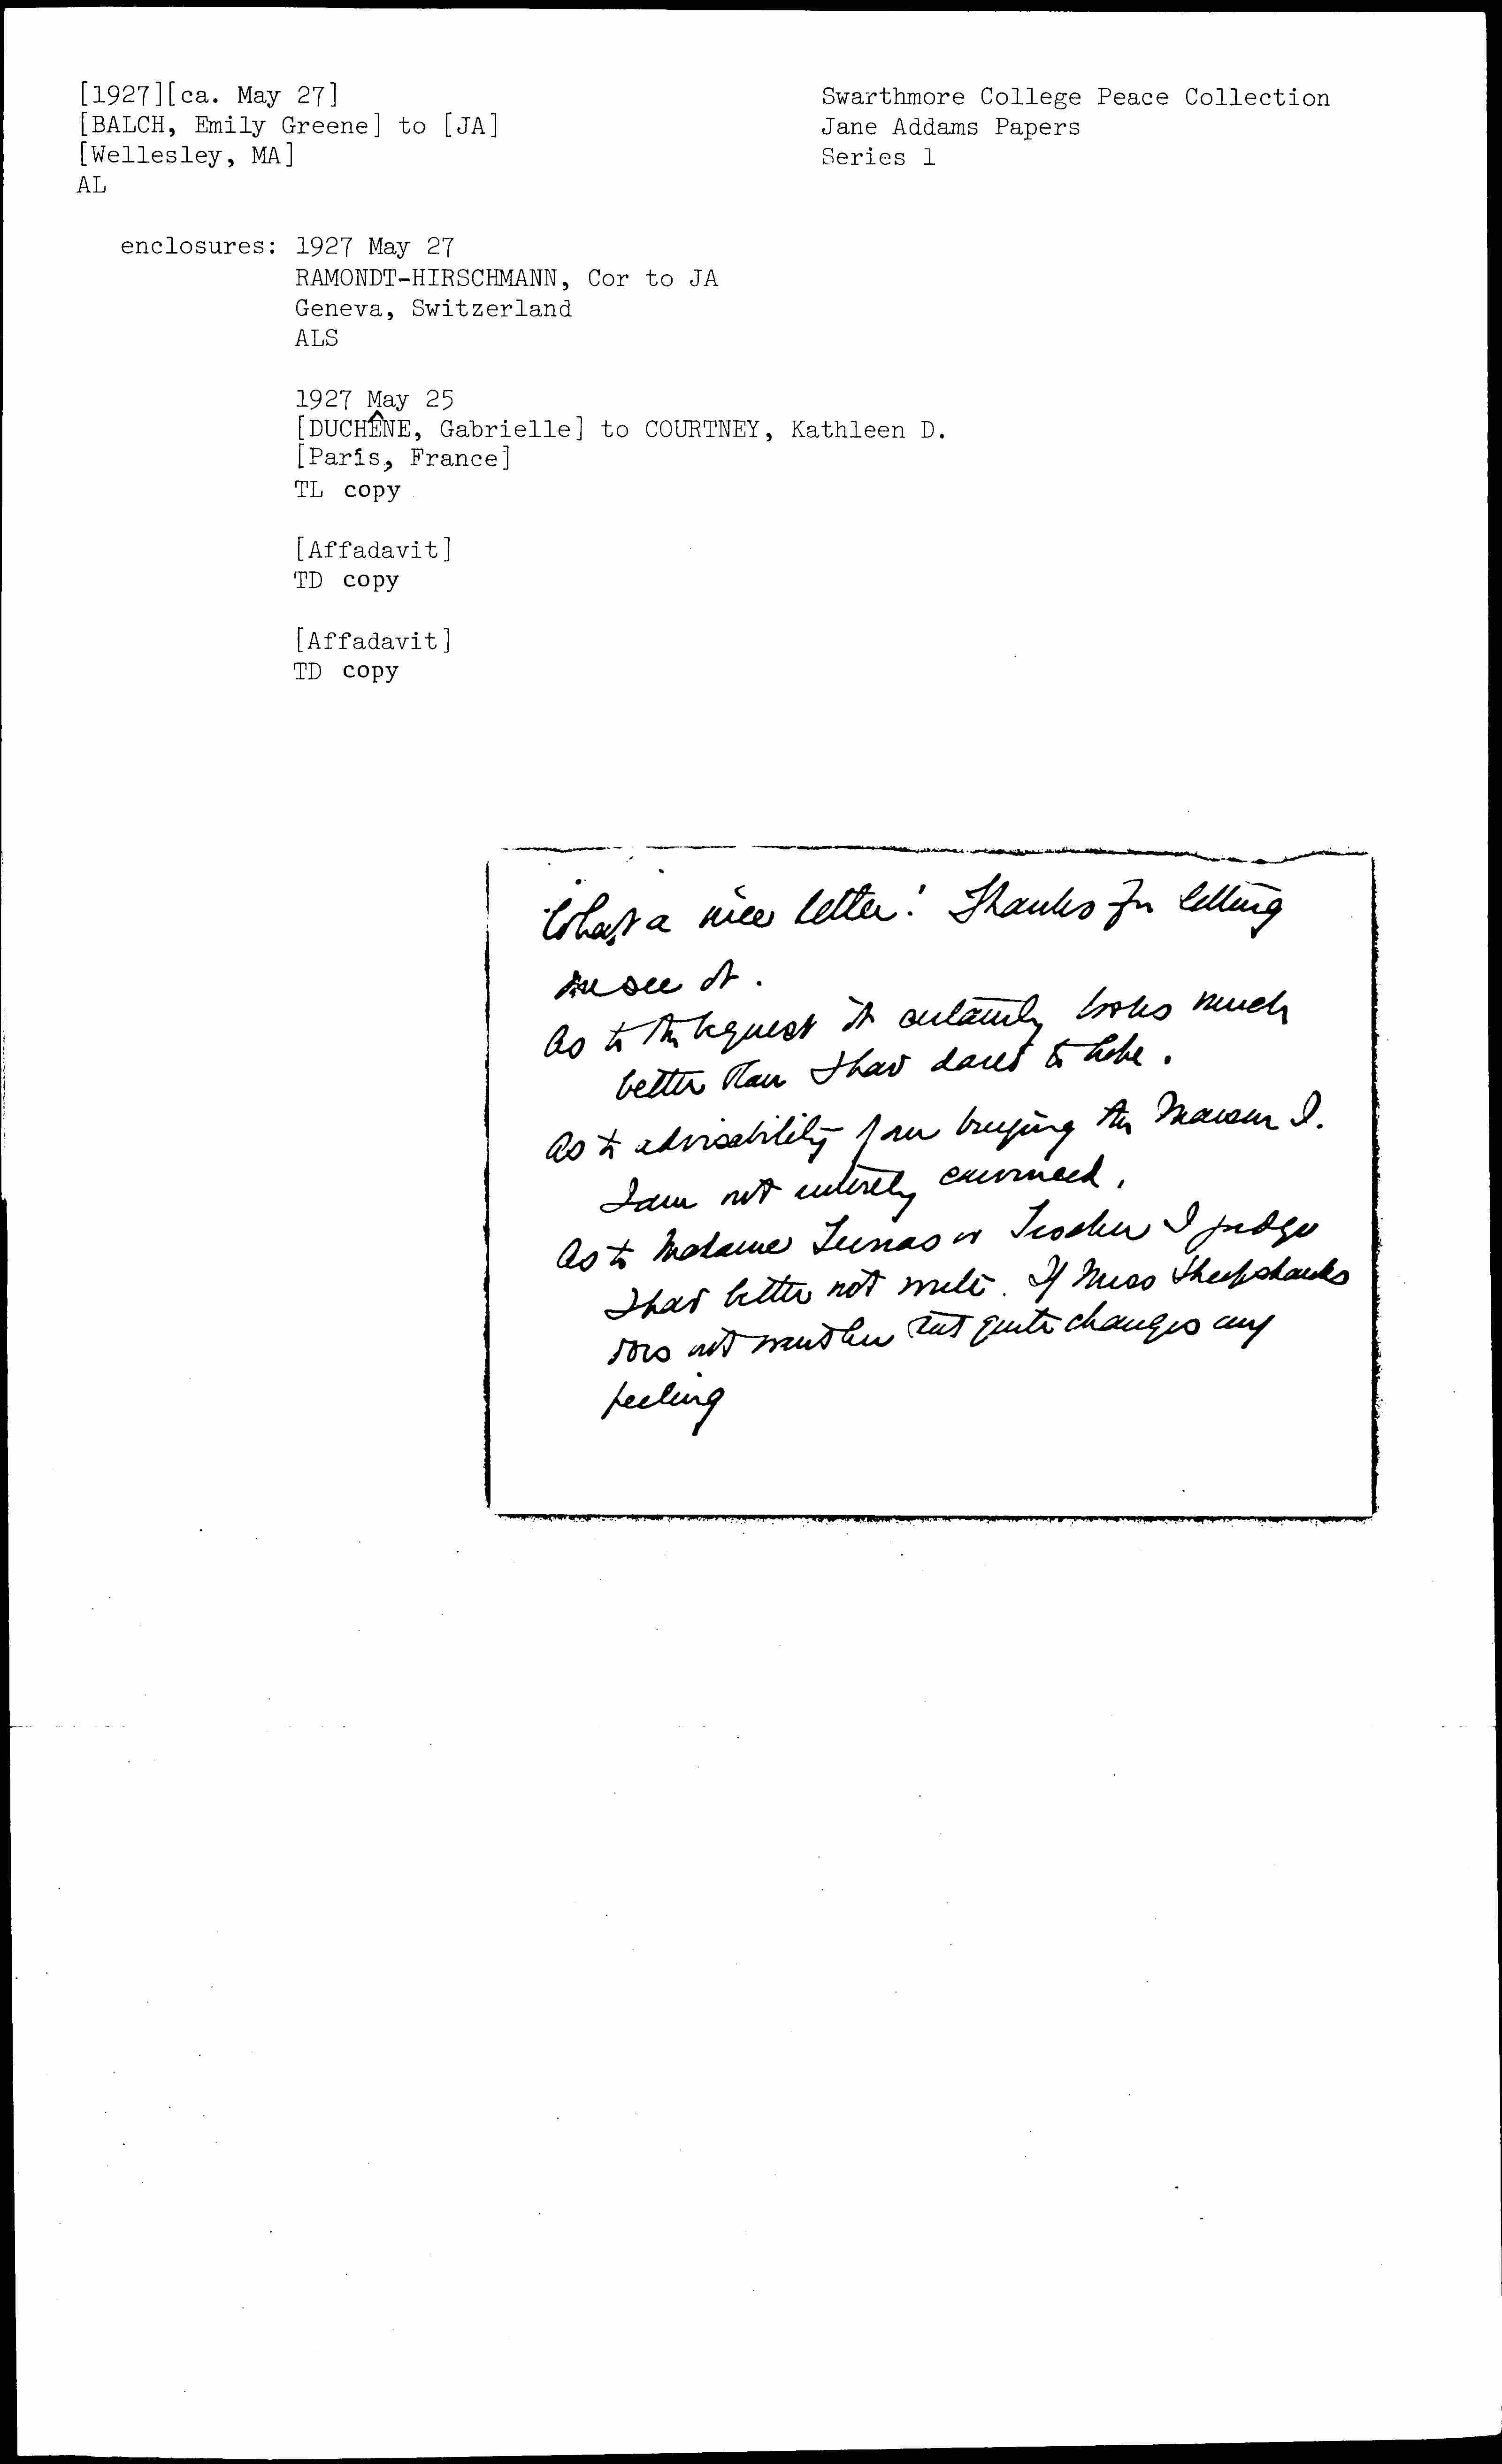 [1927][ca. May 27]
[BALCH, Emily Greene] to [JA]
[Wellesley, MA]
AL
Swarthmore College Peace Collection
Jane Addams Papers
Series 1
enclosures: 1927 May 27
RAMONDT-HIRSCHMANN, Cor to JA
Geneva, Switzerland
ALS
1927 May 25
[DUCHÊNE, Gabrielle] to COURTNEY, Kathleen D.
[Paris, France]
TL copy
[Affadavit]
TD copy
[Affadavit]
TD copy
What a nice letter! Thanks for letting
me see it.
As to the bequest it certainly looks much
better than I had dared to hope.
As to advisability of our buying the Maison I.
I am not entirely convinced.
As to Madame or I judge
I had better not write. If Miss Sheepshanks
does not want her that quite changes my
feeling